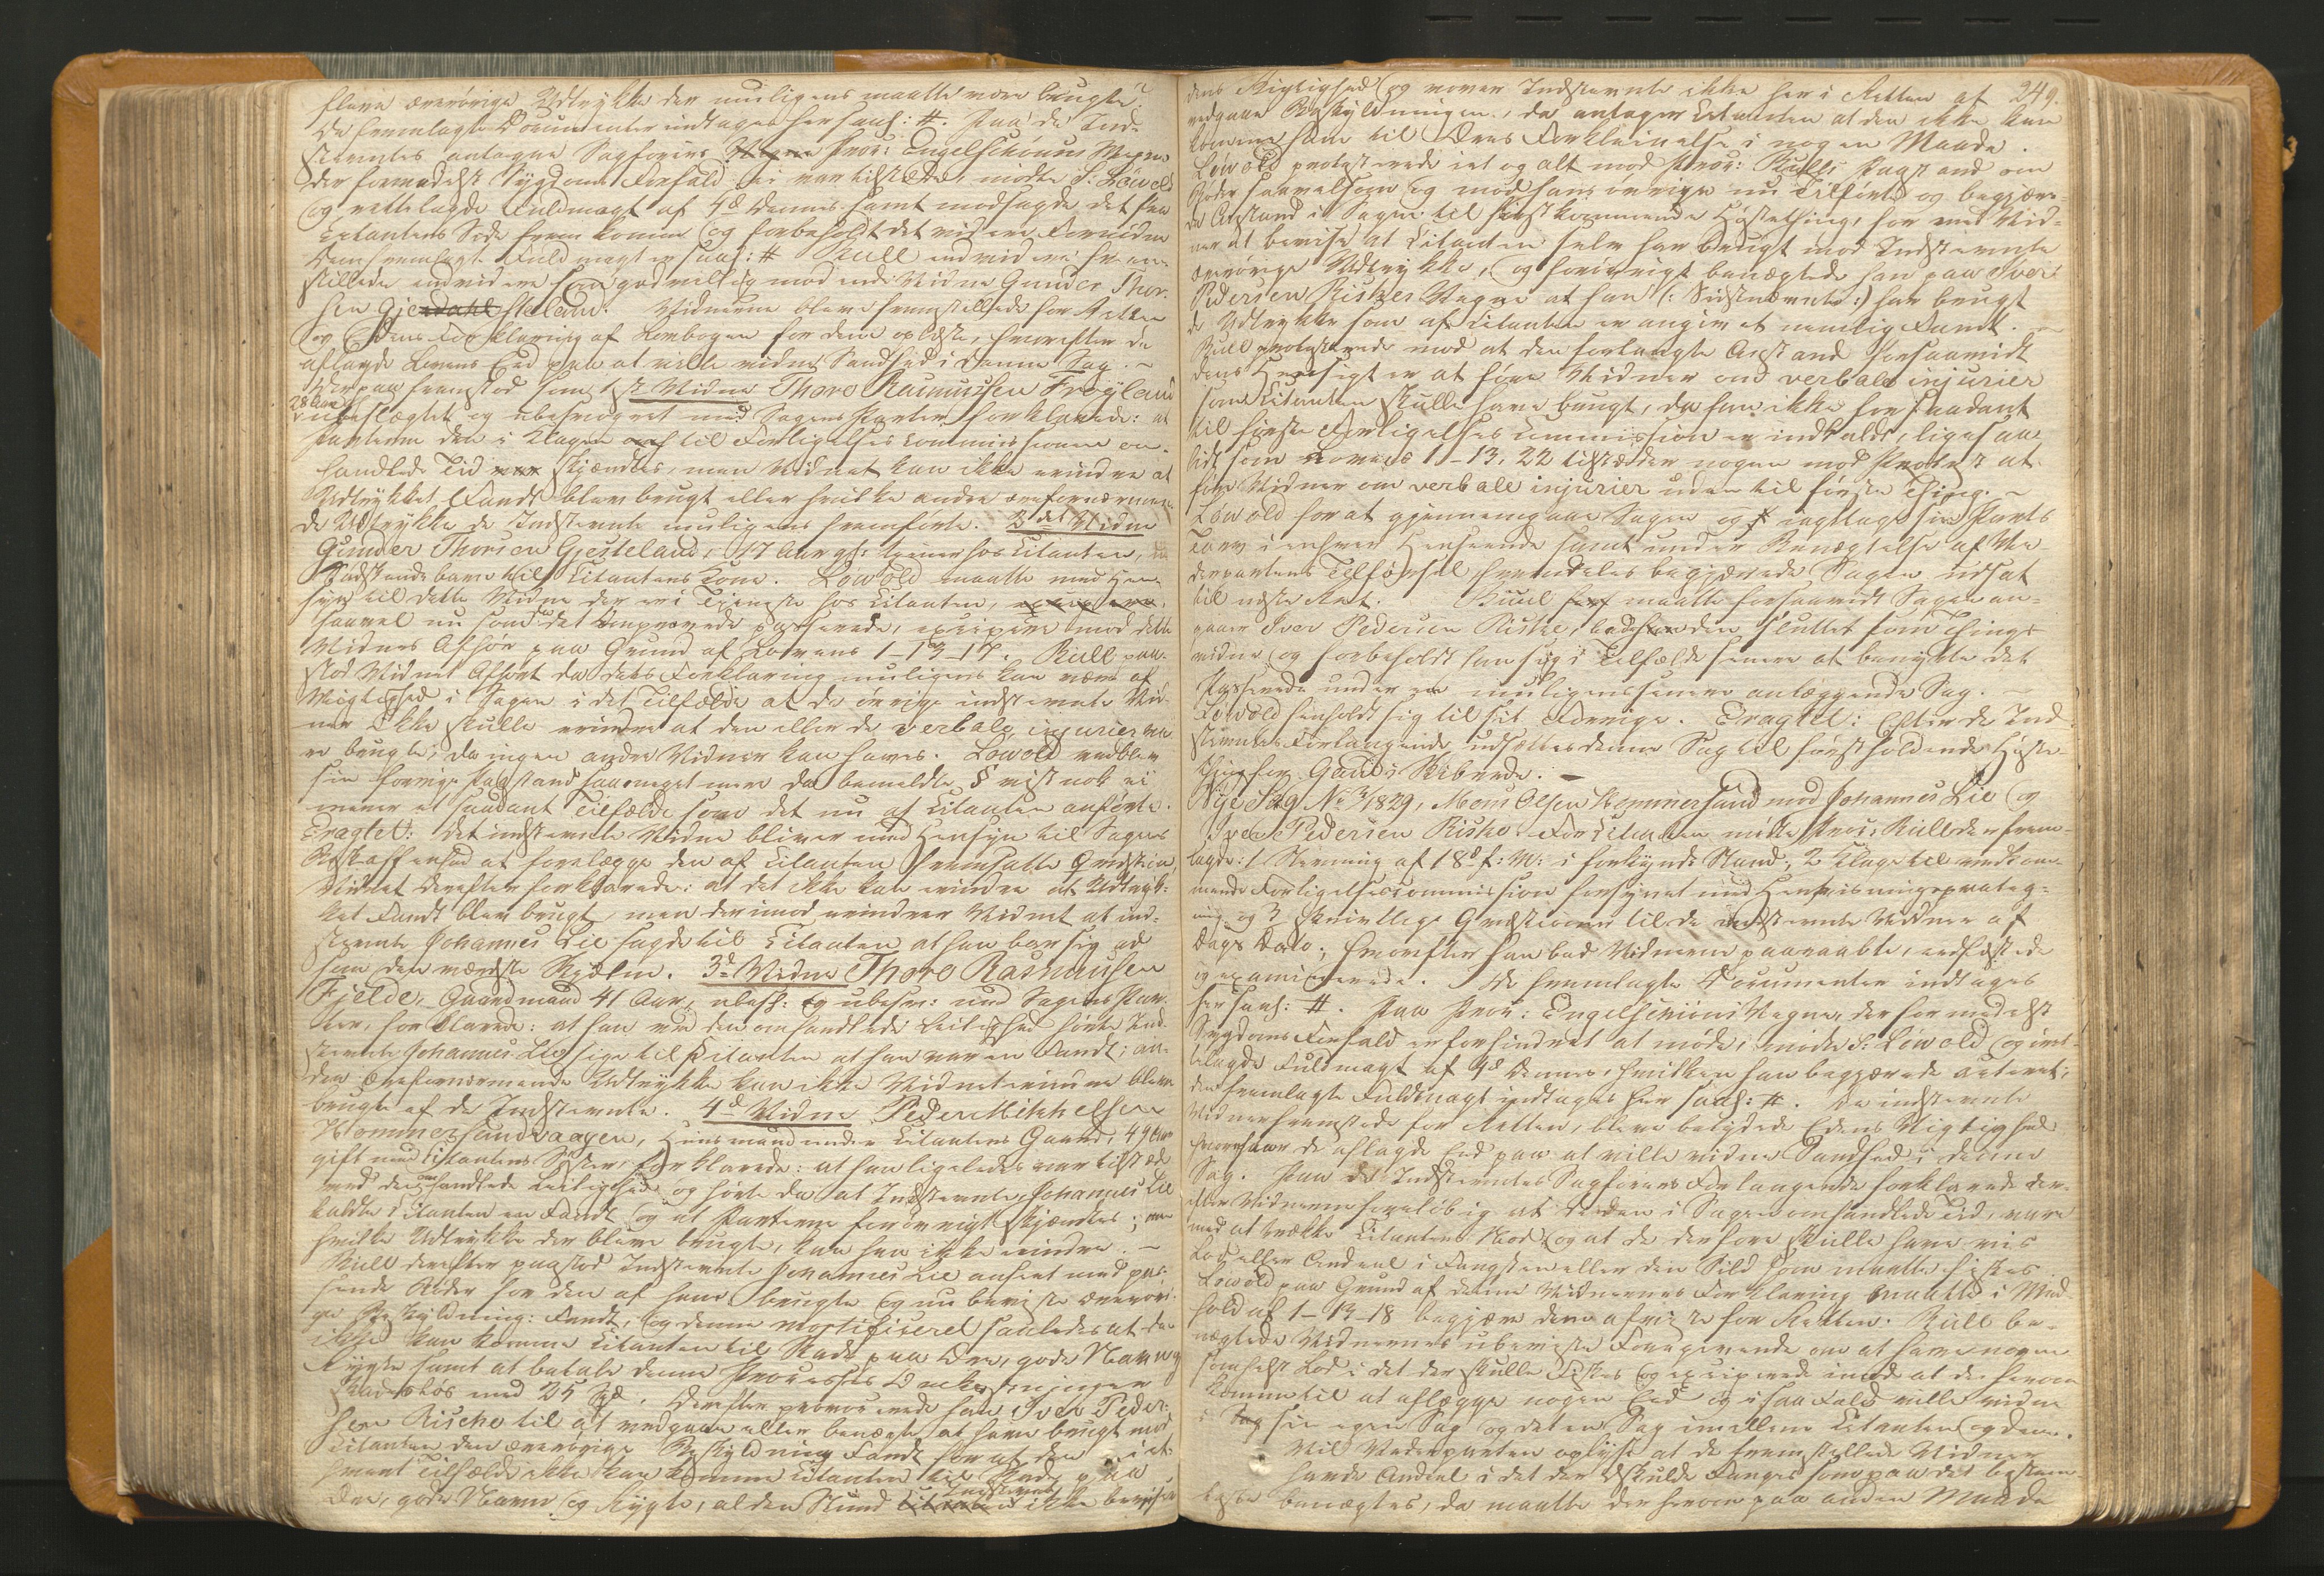 flere ærerörige Udtrykke der muligens maatte være brugte?
De fremlagte Documenter indtages her saal: #. Paa de Ind-
stevntes antagne Sagförers Proc: Engelschöuns Vegne
der formedelst Sygdoms Forfald ei var tilstæde, mödte S: Löwold
og rettelagde Fuldmagt af 4d dennes samt modsagde det fra
Citantens Side frem komne og forbeholdt det videre Fornödne
Den fremlagte Fuldmagt er saal: # Rull
stillede endvidere som godvillig mödende Vidne Gunder Thor-
sen Gjesdahl steland. Vidnerne bleve fremstillede for Retten
og Edens Forklaring af Lovbogen for dem oplæst, hvorefter de
aflagde Lovens Eed paa at ville vidne Sandhed i denne Sag. -
Derpaa fremstod som 1ste Vidne Thore Rasmussen Fröyland
28 Aar
ubeslægtet og ubesvogret med Sagens Parter forklarede: at
Parterne den i Klagen til Forligelses Commissionen om-
handlede Tid skjændtes, men Vidnet kan ikke erindre at
Udtrykket Fandt blev brugt eller hvilke andre ærefornærmen-
de Udtrykke de Indstevnte muligens fremförte. 2det Vidne
Gunder Thorsen Gjesteland, 17 Aar gl: tjener hos Citanten,
Södskendebarn til Citantens Kone. Löwold maatte med Hen-
syn til dette Vidne der er i Tjeneste hos Citanten,
saavel nu som da det Omprovede passerede, excipere mod dette
Vidnes Afhör paa Grund af Lovens 1-13-17. Rull paa-
stod Vidnet Afhört da dets Forklaring muligens kan være af
Vigtighed i Sagen i det Tilfælde at de övrige indstevnte Vid-
ner ikke skulle erindre at den eller de verbale injurier væ-
re brugte, da ingen andre Vidner kan haves. Löwold vedblev
sin forrige Paastand saameget mere da bemeldte § vistnok ei
mener et saadant Tilfælde som det nu af Citanten anförte.
Eragtet: Det indstevnte Vidne bliver med Hensyn til Sagens
Beskaffenhed at forelægge den af Citanten fremsatte Qvæstion
Vidnet derefter forklarede: at det ikke kan erindre at Udtryk-
ket Fandt blev brugt, men derimod erindrer Vidnet at ind-
stevnte Johannes Lie sagde til Citanten at han bar sig ad
som den værste Skjelm. 3d Vidne Thore Rasmussen
Fjelde, Gaardmand 41 Aar, ubesl: og ubesv: med Sagens Par-
ter, forklarede: at han ved den omhandlede Leilighed hörte Ind-
stevnte Johannes Lie sige til Citanten at han var en Fandt; an-
den ærefornærmende Udtrykke kan ikke Vidnet erindre bleve
brugte af de Indstevnte. 4d Vidne Peder Mikkelsen
Hommersandvaagen, Huusmand under Citantens Gaard, 49 Aar
gift med Citantens Söster, forklarede: at han ligeledes var tilstæde
ved den omhandlede Leilighed og hörte da at Indstevnte Johannes Lie
kaldte Citanten en Fandt og at Parterne forövrigt skjændtes; men
hvilke Udtrykke der bleve brugte, kan han ikke erindre. -
Rull derefter paastod Indstevnte Johannes Lie anseet med pas-
sende Böder for den af ham brugte og nu beviste æreröri-
ge Beskyldning: Fandt, og denne mortificeret saaledes at den
ikke kan komme Citanten til Skade paa Ære, gode Navn og
Rygte samt at betale denne Processes Omkostninger
skadeslös med 25 Spd. Derefter provocerede han Iver Peder-
sen Riske til at vedgaae eller benægte at have brugt mod
Citanten den ærerörige Beskyldning Fandt for at den i et
hvert Tilfælde ikke kan komme Citanten til Skade paa
Indstevnte
Ære, gode Navn og Rygte, al den Stund Citanten ikke beviser
249.
dens Rigtighed og naar Indstevnte ikke her i Retten at
vedgaae Beskyldningen, da antager Citanten at den ikke kan
komme ham til Æres Forkleinelse i nogen Maade.
Löwold protesterede i et og alt mod Proc: Rulls Paastand om
Böder saavelsom og mod hans övrige nu Tilförte og begjære-
de Anstand i Sagen til förstkommende Hösteting, for med Vid-
ner at bevise at Citanten selv har brugt mod Indstevnte
ærerörige Udtrykke, og forövrigt benægtede han paa Iver
Pedersen Riskes Vegne at han (: Sidstnævnte :) har brugt
de Udtrykke som af Citanten er angivet nemlig Fandt. -
Rull protesterede mod at den forlangte Anstand forsaavidt
dens Hensigt er at före Vidner om verbale injurier
som Citanten skulle have brugt, da han ikke for saadant
til förste Forligelses Commission er indkaldt, ligesaa
lidt som Lovens 1-13, 22 tilsteder nogen mod Protest at
före Vidner om verbale injurier uden til förste Thing. -
Löwold for at gjennemgaae Sagen og iagttage sin Parts
Tarv i enhver Henseende samt under Benægtelse af Mo-
dpartens Tilförsel fremdeles begjærede Sagen udsat
til næste Ret. Rull maatte forsaavidt Sagen an-
gaaer Iver Pedersen Riske, bede den sluttet som Things
vidne og forbeholdt han sig i Tilfælde senere at benytte det
Passerede under en muligens senere anlæggende Sag. -
Löwold henholdt sig til sit Forrige. Eragtet: Efter de Ind-
stevntes Forlangende udsættes denne Sag til förstholdende Höste-
thing for Gand i Skibrede. -
Nye Sag No 3/1829, Mons Olsen Hommersand mod Johannes Lie og
Iver Pedersen Riske. For Citanten mödte Proc: Rull der frem-
lagde: 1 Stevning af 18d f: M: i forkyndt Stand; 2 Klage til vedkom-
mende Forligelsescommission forsynet med Henvisningspaateg-
ning og 3 skrivtlige Qvæstioner til de indstevnte Vidner af
Dags Dato; hvorefter han bad Vidnerne paaraabte, eedfæstede
og examinerede. De fremlagte Documenter indtages
her saal: #. Paa Proc: Engelschiöns Vegne, der formedelst
Sygdoms Forfald er forhindret at möde, mödte S: Löwold og
lagde Fuldmagt af 4d dennes, hvilken han begjærede acteret;
den fremlagte Fuldmagt indtages her saal: #. De indstevnte
Vidner fremstode for Retten, bleve betydede Edens Rigtighed
hvorpaa de aflagde Eed paa at ville vidne Sandhed i denne
Sag. Paa de Indstevntes Sagförers Forlangende forklarede der-
efter Vidnerne foreløbig at de den i Sagen omhandlede Tid, vare
med at trække Citantens Nod og at de derfore skulle have vis
Lod eller Andeel i Fangsten eller den Sild som maatte fiskes.
Löwold paa Grund af denne Vidnernes Forklaring maatte i Med-
hold af 1-13-18 begjære dem afviste for Retten. Rull be-
nægtede Vidnernes ubeviste Foregivende om at have nogen
somhelst Lod i det der skulle Fiskes og exciperede imod at de herom
komme til at aflægge nogen Eed og i saa Fald ville vidne
i sin egen Sag og det en Sag imellem Citanten og dem.
Vil Modparten oplyse at de fremstillede Vidner
havde Andeel i det der skulde Fanges som paa det bestem-
teste benægtes, da maatte der herom paa anden Maade